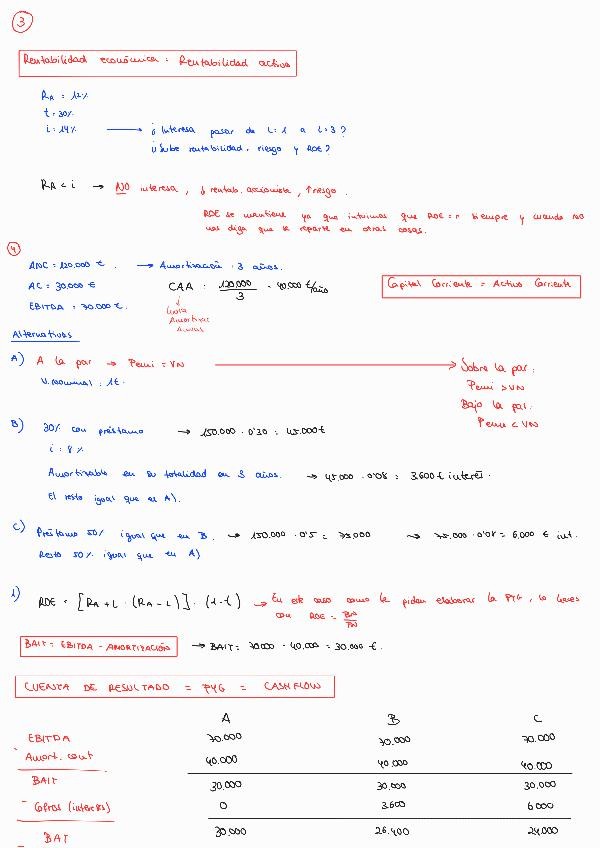 3
Rentabilidad económica = Rentabilidad activo
RA = 12%
t = 30%
i = 14% → ¿Interesa pasar de L=1 a L=3?
¿Sube rentabilidad, riesgo y ROE?
RA < i → NO interesa, ↓ rentab. accionista, ↑ riesgo.
ROE se mantiene ya que intuimos que ROE = r siempre y cuando NO
nos diga que se reparte en otras cosas.
4
ANC = 120.000 €. → Amortización = 3 años.
AC = 30.000 € CAA = 120.000 / 3 = 40.000 €/año
Capital Corriente = Activo Corriente
EBITDA = 70.000 €.
Cuota
Amortizac
Anual
Alternativas
A) A la par → Pemi = VN → Sobre la par:
V. nominal = 1€. Pemi > VN
Bajo la par:
Pemi < VN
B) 30% con préstamo → 150.000 · 0'30 = 45.000 €
i = 8%
Amortizable en su totalidad en 3 años. → 45.000 · 0'08 = 3.600 € interés.
El resto igual que en A).
C) Préstamo 50% igual que en B. → 150.000 · 0'5 = 75.000 → 75.000 · 0'08 = 6.000 € int.
Resto 50% igual que en A)
1) ROE = [RA + L · (RA - i)] · (1-t) → En este caso como te piden elaborar la PYG, lo haces
con ROE = BN / PN
BAIT = EBITDA - AMORTIZACIÓN → BAIT = 70.000 - 40.000 = 30.000 €.
CUENTA DE RESULTADO = PYG = CASHFLOW
A B C
EBITDA 70.000 70.000 70.000
- Amort. cont 40.000 40.000 40.000
BAIT 30.000 30.000 30.000
- Gfros (intereses) 0 3.600 6.000
BAT 30.000 26.400 24.000